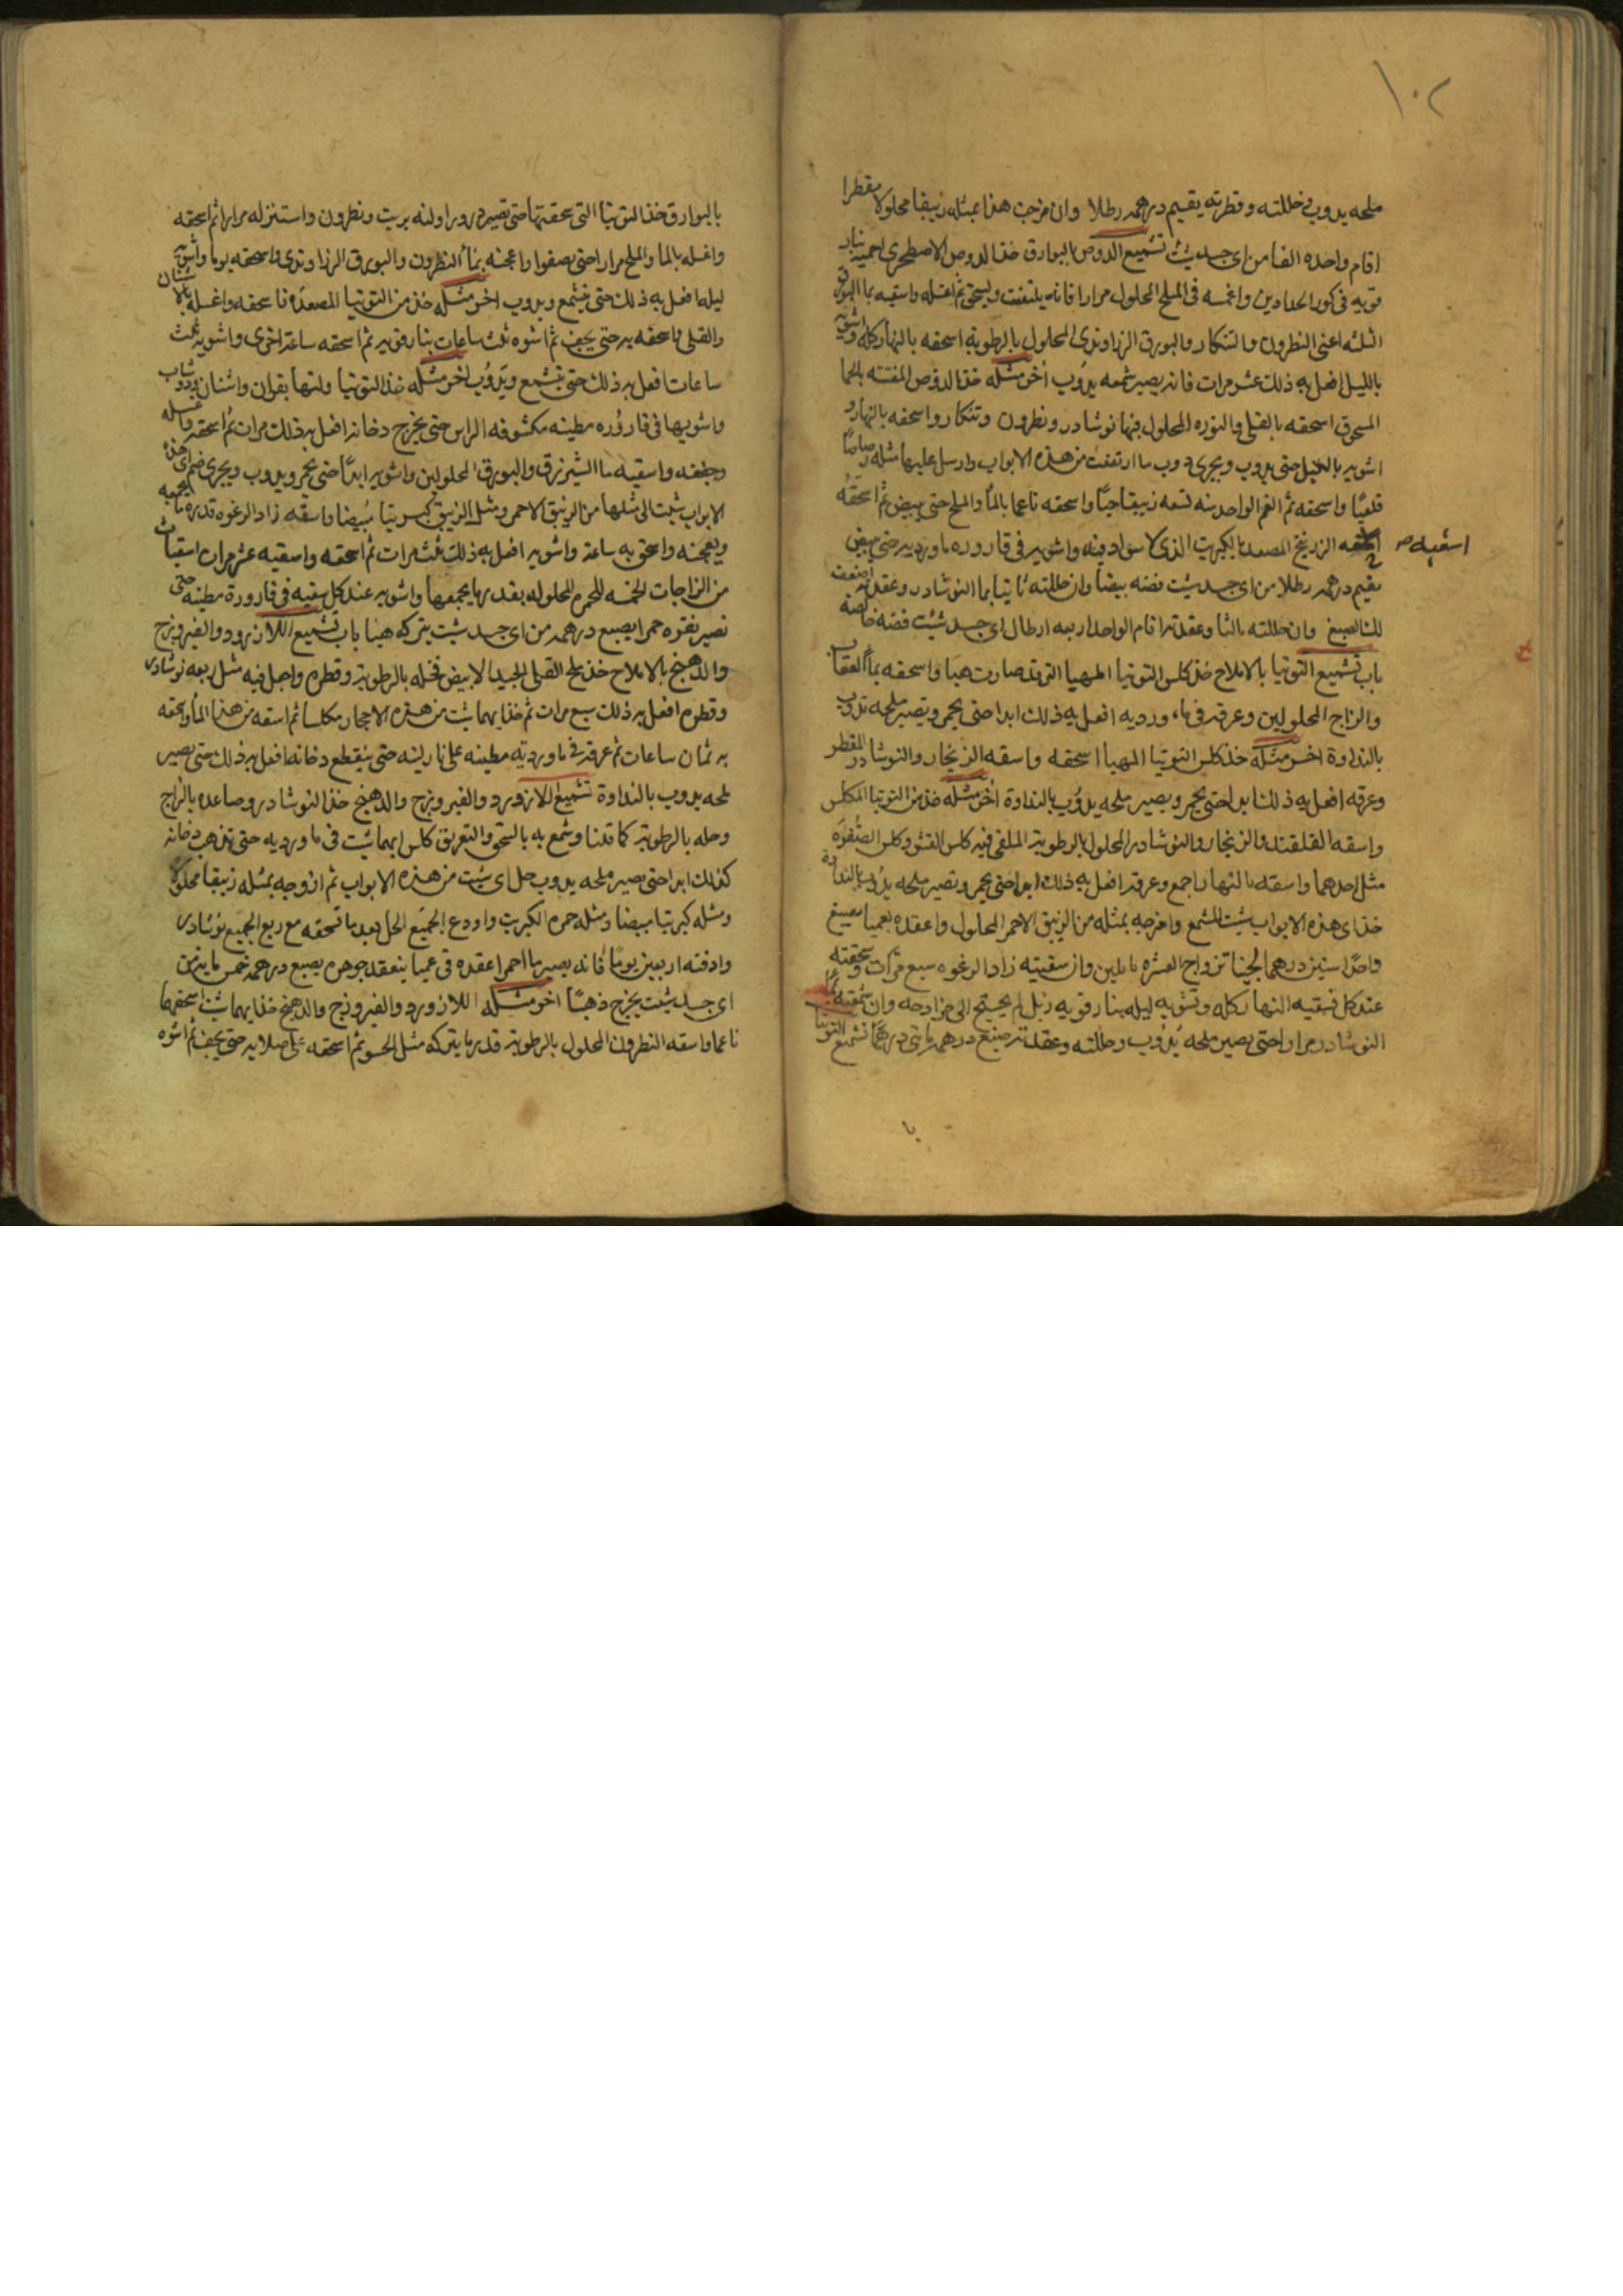 ١٠٢
ملحه يدوب خللته وقطرته يقيم درهمه رطلا وان مزجت هذا بمثله زيبقا محلولا مقطرا
اقام واحده الفا من اي جسد شيت تشميع الدوص بالبوارق خذ الدوص الاصطخري احميه بنار
قويه في كور الحدادين واغمسه في الملح المحلول مرارا فانه يتفتت ثم اغسله واسقيه بما البوارق
الثلثه اعني النطرون والتنكار والبورق الزراوندي المحلول بالرطوبه اسحقه بالنهار كله واشويه
بالليل افعل به ذلك عشر مرات فانه يصير شمعه يدوب اخر مثله خذ الدوص المفتته بالحما
المسحوق اسحقه بالقلي والنوره المحلول فيها نوشادر ونطرون وتنكار واسحقه بالنهار و
اشويه بالليل حتى يدوب ويجري دوب ما ارتفعت من هذه الابواب وارسل عليها مثله رصاصا
قلعيا واسحقه ثم القم الواحد منه تسعه زيبقا حيا واسحقه ناعما بالما والملح حتى يبيض ثم اسحقه
اسقيه صح
الزرنيخ المصعد بالكبريت الذي لا سواد فيه واشويه في قاروره ماورديه حتى يبيض
يقيم درهمه رطلا من اي جسد شيت فضه بيضا وان حللته ثانيا بما النوشادر وعقدته اضعفت
لك الصبغ وان حللته ثالثا وعقدته اقام الواحد اربعه ارطال اي جسد شيت فضه خالصه
باب تشميع التوتيا بالاملاح خذ كلس التوتيا المهيا التي قد صارت هبا واسحقه بما العقاب
والزاج المحلولين وعرقه في ماورديه افعل به ذلك ابدا حتى يحمر ويصير ملحه تدوب
بالنداوة اخر مثله خذ كلس التوتيا المهيا اسحقه واسقه الزنجار والنوشادر المقطر
وعرقه افعل به ذلك ابدا حتى يحمر ويصير ملحه يدوب بالنداوة اخر مثله خذ من التوتيا المكلس
واسقه القلقند والزنجار والنوشادر المحلول بالرطوبة الملقى فيه كلس القشر وكلس الصفره
مثل احدهما واسقه بالنهار اجمع وعرقه افعل به ذلك ابدا حتى يحمر وتصير ملحه يدوب بالنداوة
خذ اي هذه الابواب شيت المشمع وامزجه بمثله من الزيبق الاحمر المحلول واعقده بعميا يصبغ
واحدا ستين درهما لجينا تزواج العشره باملين وان سقيته زاد الرغوه سبع مرات وسحقته
عند كل تسقيه النهار كله وتشويه ليله بنار قويه زبل لم يحتج الى مزاوجه وان شمعته بما
النوشادر مرارا حتى يصير ملحه يدوب وحللته وعقدته صبغ درهمه مايتي درهما تشميع التوتيا
بالبوارق خذ التوتيا التي سحقتها حتى تصير درورا ولته بزيت ونطرون واستنزله مرارا ثم اسحقه
واغسله بالما والملح مرارا حتى يصفوا واعجنه بما النطرون والبورق الزراوندي واسحقه يوما واشويه
ليله افعل به ذلك حتى يتشمع ويدوب اخر مثله خذ من التوتيا المصعده فاسحقه واغسله بالاشنان
والقلي واسحقه به حتى يجف ثم اشوه ثلث ساعات بنار قويه ثم اسحقه ساعة اخرى واشويه ثلث
ساعات افعل به ذلك حتى يتشمع ويدوب اخر مثله خذ التوتيا ولتها بقوان واشنان ودوشاب
واشويها في قاروره مطينه مكشوفه الراس حتى يخرج دخانه افعل به ذلك مرات ثم اسحقه واغسله
وجففه واسقيه ما الشيزرق والبورق المحلولين واشويه ابدا حتى يحمر ويدوب ويجري ضم اي هذه
الابواب شيت الى مثلها من الزيبق الاحمر ومثل الزيبق كبريتا مبيضا واسقه زاد الرغوه قدر ما يجمعه
ويعجنه واسحق به ساعة واشويه افعل به ذلك ثلث مرات ثم اسحقه واسقيه عشر مرات اسقيات
من الزاجات الخمسه المحمر المحلوله بقدر ما يجمعها واشويه عند كل سقيه في قارورة مطينه حتى
تصير نقره حمرا يصبغ درهمه من اي جسد شيت يتركه هبا باب تشميع اللازورد والفيروزج
والدهنج بالاملاح خذ ملح القلي الجيد الابيض فحله بالرطوبة وقطره واجعل فيه مثل ربعه نوشادر
وقطره افعل به ذلك سبع مرات ثم خذ ايهما شيت من هذه الاحجار مكلسا ثم اسقه من هذا الما واسحقه
به ثمان ساعات ثم عرقه في ماورديه مطينه على نار لينه حتى ينقطع دخانه افعل به ذلك حتى يصير
ملحه يدوب بالنداوة تشميع اللازورد والفيروزج والدهنج خذ النوشادر وصاعده بالزاج
وحله بالرطوبة كما قلنا وشمع به بالسحق والتعريق كلس ايهما شيت في ماورديه حتى تذهب دخانه
كذلك ابدا حتى يصير ملحه يدوب حل اي شيت من هذه الابواب ثم ازوجه بمثله زيبقا محلولا
ومثله كبريتا مبيضا ومثله حمره الكبريت واودع الجميع الحل بعد ما تسحقه مع ربع الجميع نوشادر
وادفنه اربعين يوما فانه يصير ما احمرا عقده في عميا ينعقد جوهره يصبغ درهمه خمس مايه من
اي جسد شيت يخرج ذهبا اخر مثله اللازورد والفيروزج والدهنج خذ ايهما شيت اسحقها
ناعما واسقه النطرون المحلول بالرطوبة قدر ما يتركه مثل الحسو ثم اسحقه على صلايه حتى يجف ثم اشوه